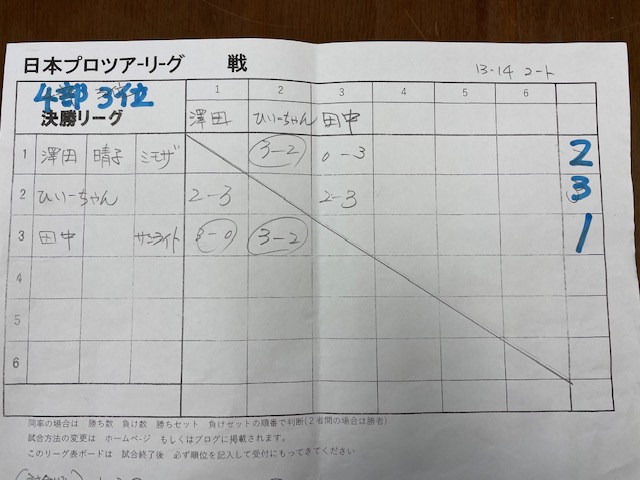 日本プロツアーリーグ 戦
13-14 コート
4部 3位
決勝リーグ
1 2 3 4 5 6
澤田 ひぃーちゃん 田中
1 澤田 晴子 ミモザ 3-2 0-3 2
2 ひぃーちゃん 2-3 2-3 3
3 田中 サンライト 3-0 3-2 1
4
5
6
同率の場合は 勝ち数 負け数 勝ちセット 負けセットの順番で判断(2者間の場合は勝者)
試合方法の変更は ホームページ もしくはブログに掲載されます。
このリーグ表ボードは 試合終了後 必ず順位を記入して受付にもってきてください